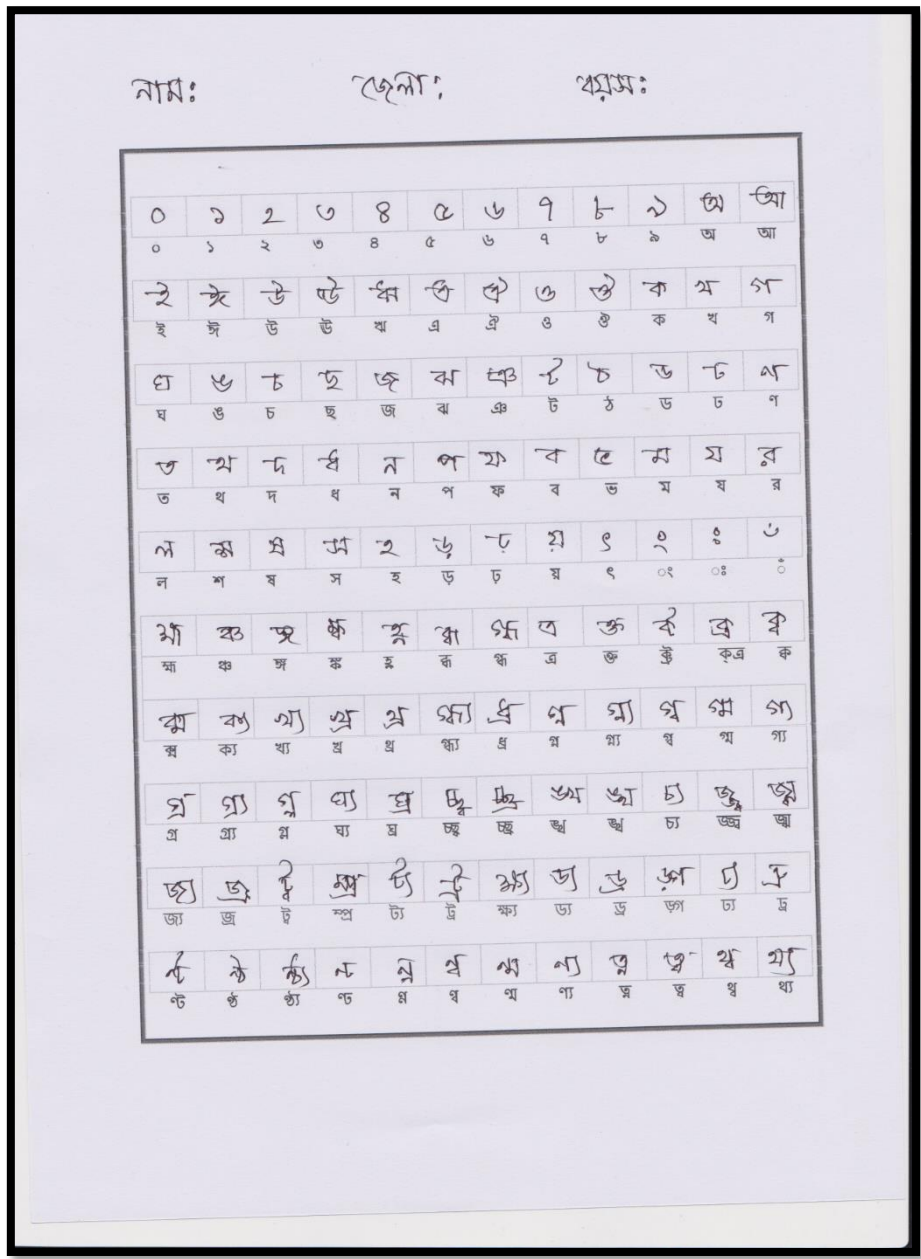 নামঃ জেলাঃ বয়সঃ
০ ১ ২ ৩ ৪ ৫ ৬ ৭ ৮ ৯ অ আ
০ ১ ২ ৩ ৪ ৫ ৬ ৭ ৮ ৯ অ আ
ই ঈ উ ঊ ঋ এ ঐ ও ঔ ক খ গ
ই ঈ উ ঊ ঋ এ ঐ ও ঔ ক খ গ
ঘ ঙ চ ছ জ ঝ ঞ ট ঠ ড ঢ ণ
ঘ ঙ চ ছ জ ঝ ঞ ট ঠ ড ঢ ণ
ত থ দ ধ ন প ফ ব ভ ম য র
ত থ দ ধ ন প ফ ব ভ ম য র
ল শ ষ স হ ড় ঢ় য় ৎ ং ঃ ঁ
ল শ ষ স হ ড় ঢ় য় ৎ ং ঃ ঁ
ঞ্চ ঙ্গ ঙ্ক হ্ন ব্ধ গ্ধ ত্র ক্ত ক্ট ক্ব
ঞ্চ ঙ্গ ঙ্ক হ্ন ব্ধ গ্ধ ত্র ক্ত ক্ত্র ক্ব
ক্ম ক্য খ্য খ্র থ্র গ্ধ্য ধ্র গ্ন গ্ন্য গ্ব গ্ম গ্য
ক্ম ক্য খ্য খ্র থ্র গ্ধ্য ধ্র গ্ন গ্ন্য গ্ব গ্ম গ্য
গ্র গ্র্য গ্ল ঘ্য ঘ্র চ্ছ্ব চ্ছ্র ঙ্খ ঙ্খ চ্য জ্জ্ব জ্ঝ
গ্র গ্র্য গ্ল ঘ্য ঘ্র চ্ছ্ব চ্ছ্র ঙ্খ ঙ্খ চ্য জ্জ্ব জ্ঝ
জ্য জ্র ট্ব ম্প্র ট্য ট্র ক্ষ্য ড্য ড্র ড়্গ ঢ্য ঢ্র
জ্য জ্র ট্ব ম্প্র ট্য ট্র ক্ষ্য ড্য ড্র ড়্গ ঢ্য ঢ্র
ণ্ট ণ্ঠ ণ্ঠ্য ণ্ঢ ণ্ন ণ্ব ণ্ম ণ্য ত্ন ত্ব থ্ব থ্য
ণ্ট ণ্ঠ ণ্ঠ্য ণ্ঢ ণ্ন ণ্ব ণ্ম ণ্য ত্ন ত্ব থ্ব থ্য